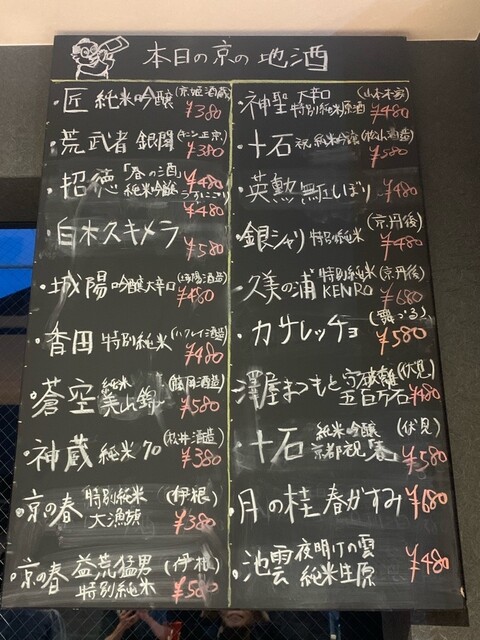 本日の京の地酒
・匠 純米吟醸 (京姫酒蔵) ¥380
・荒武者 銀閣 (キンシ正宗) ¥380
・招徳 「春の酒」 ¥480
純米吟醸 うすにごり ¥480
・白木久 キメラ ¥580
・城陽 吟醸大辛口 (城陽酒造) ¥480
・香田 特別純米 (ハクレイ酒造) ¥480
・蒼空 純米 美山錦 (藤岡酒造) ¥580
・神蔵 純米 70 (松井酒造) ¥380
・京の春 特別純米 (伊根)
大漁願 ¥380
・京の春 益荒猛男 (伊根)
特別純米 ¥580
・神聖 大辛口 (山本本家)
特別純米原酒 ¥480
・十石 祝 純米吟醸 (松山酒造) ¥580
・英勲 無圧しぼり ¥480
・銀シャリ 特別純米 (京丹後) ¥480
・久美の浦 特別純米 (京丹後)
KENRO ¥680
・カサレッチョ (舞づる) ¥580
・澤屋まつもと 守破離 (伏見)
五百万石 ¥480
・十石 純米吟醸 (伏見)
京都祝 春 ¥580
・月の桂 春がすみ ¥680
・池雲 夜明けの雲
純米生原 ¥480